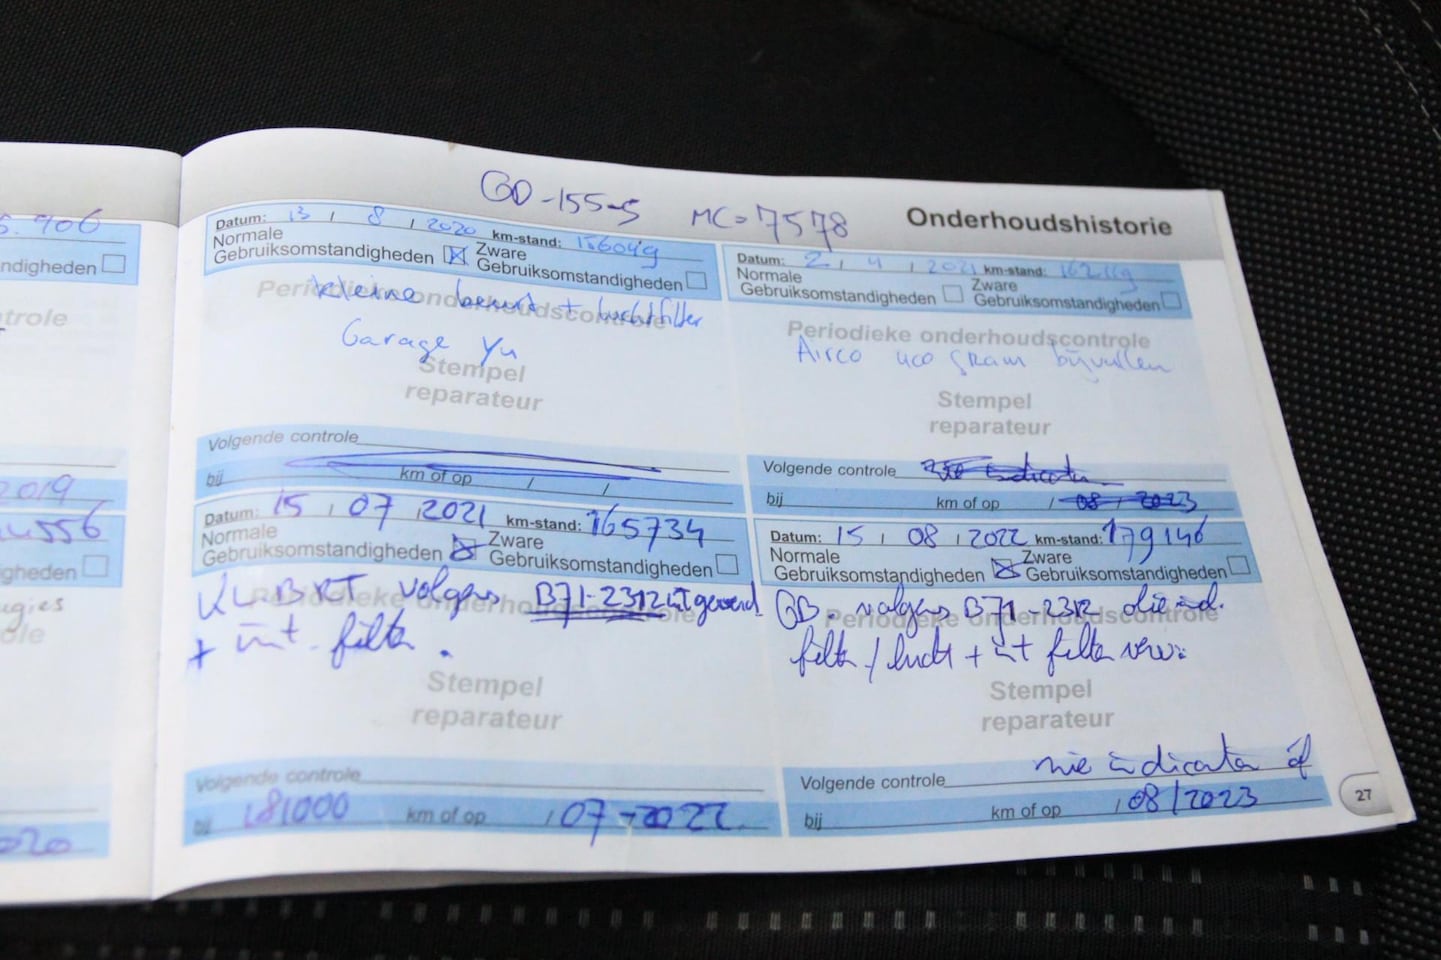 5.906
ndigheden
trole
2019
4556
gheden
ugies
ole
2020
GD-155-S MC=7578 Onderhoudshistorie
Datum: 13 / 8 / 2020 km-stand: 156049
Normale Gebruiksomstandigheden ☒ Zware Gebruiksomstandigheden ☐
Periodieke onderhoudscontrole
kleine beurt + luchtfilter
Garage Yu
Stempel
reparateur
Volgende controle
bij km of op / /
Datum: 2 / 4 / 2021 km-stand:
Normale Gebruiksomstandigheden ☐ Zware Gebruiksomstandigheden ☐
Periodieke onderhoudscontrole
Airco 400 gram bijvullen
Stempel
reparateur
Volgende controle zie indicator
bij km of op / 08 - 2023
Datum: 15 / 07 / 2021 km-stand: 165734
Normale Gebruiksomstandigheden ☒ Zware Gebruiksomstandigheden ☐
Periodieke onderhoudscontrole
KL BRT volgens B71-2312 uitgevoerd
+ int. filter.
Stempel
reparateur
Volgende controle
bij 181000 km of op / 07-2022
Datum: 15 / 08 / 2022 km-stand: 179146
Normale Gebruiksomstandigheden ☒ Zware Gebruiksomstandigheden ☐
Periodieke onderhoudscontrole
GB. volgens B71-2312 olie
filter / lucht + int filter
Stempel
reparateur
Volgende controle zie indicator of
bij km of op / 08/2023
27